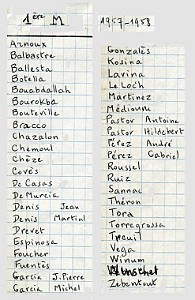 1ère M
Arnoux
Balbastre
Ballesta
Botella
Bouabdallah
Bourokba
Bouteville
Bracco
Chazalon
Chemoul
Chèze
Covès
De Casas
De Murcia
Denis Jean
Denis Martial
Drevet
Espinosa
Foucher
Fuentès
Garcia J. Pierre
Garcia Michel
1957-1958
Gonzalès
Kosina
Lavina
Le Loc'h
Martinez
Médioune
Pastor Antoine
Pastor Hildebert
Pérez André
Pérez Gabriel
Roussel
Ruiz
Sannac
Théron
Tora
Torregrossa
Treuil
Vega
Winum
Zebentout